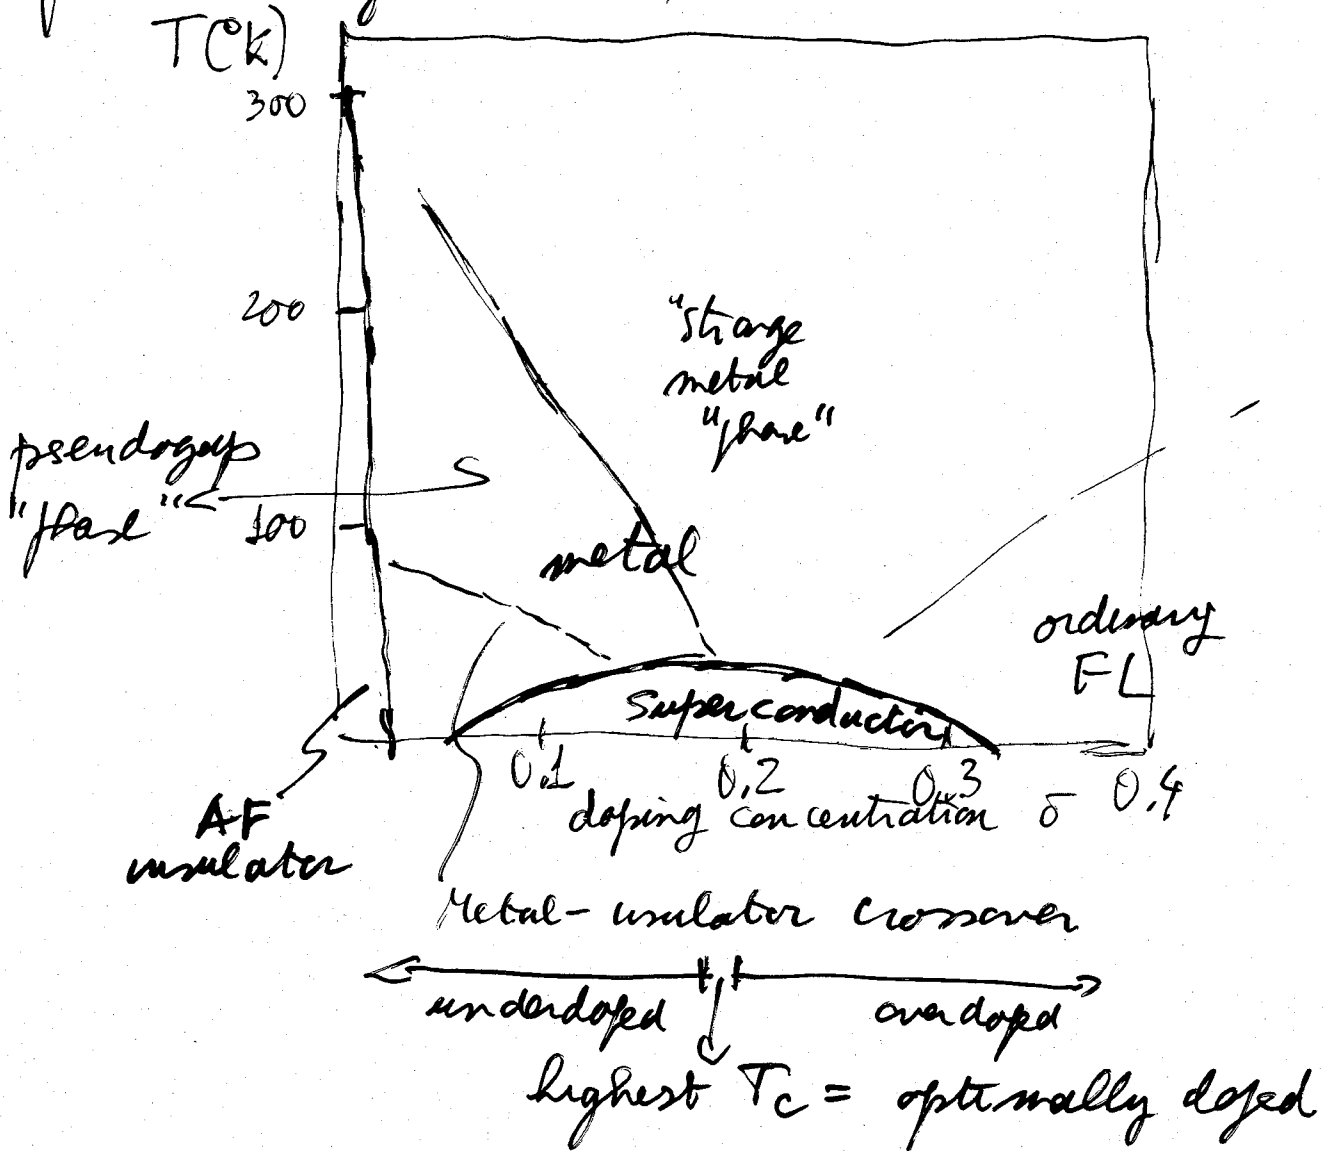 T(°K)
300
200
"strange
metal
"phase"
pseudogap
"phase"
100
metal
ordinary
FL
Superconductor
0.1
0.2
0.3
0.4
doping concentration δ
AF
insulator
Metal-insulator crossover
underdoped
overdoped
highest Tc = optimally doped